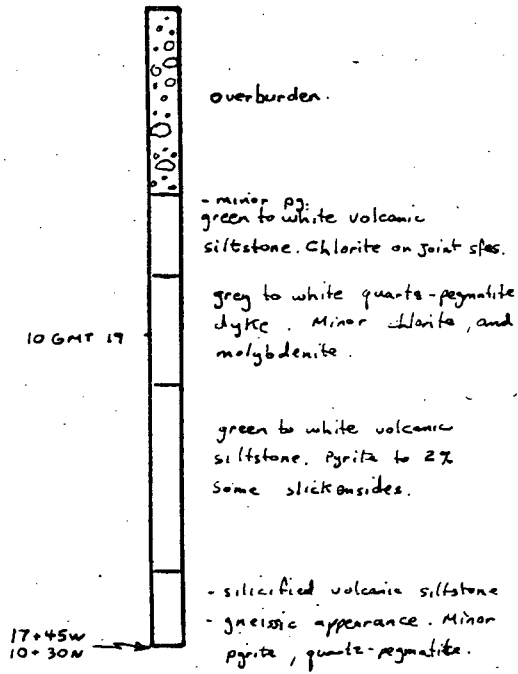 overburden.
- minor py.
green to white volcanic
siltstone. Chlorite on joint sfcs.
grey to white quartz-pegmatite
dyke. Minor chlorite, and
molybdenite.
10 GMT 19
green to white volcanic
siltstone. Pyrite to 2%
Some slickensides.
- silicified volcanic siltstone
- gneissic appearance. Minor
pyrite, quartz-pegmatite.
17+45W
10+30N